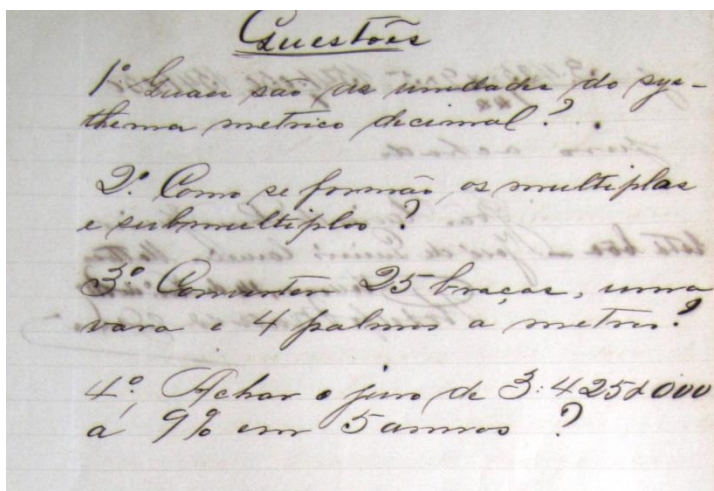 Questões
1º Quaes são as unidades do sys-
thema metrico decimal?
2º Como se formão os multiplos
e submultiplos?
3º Converter 25 braças, uma
vara e 4 palmos a metros?
4º, Achar o juro de 3:425$000
á 9% em 5 annos?